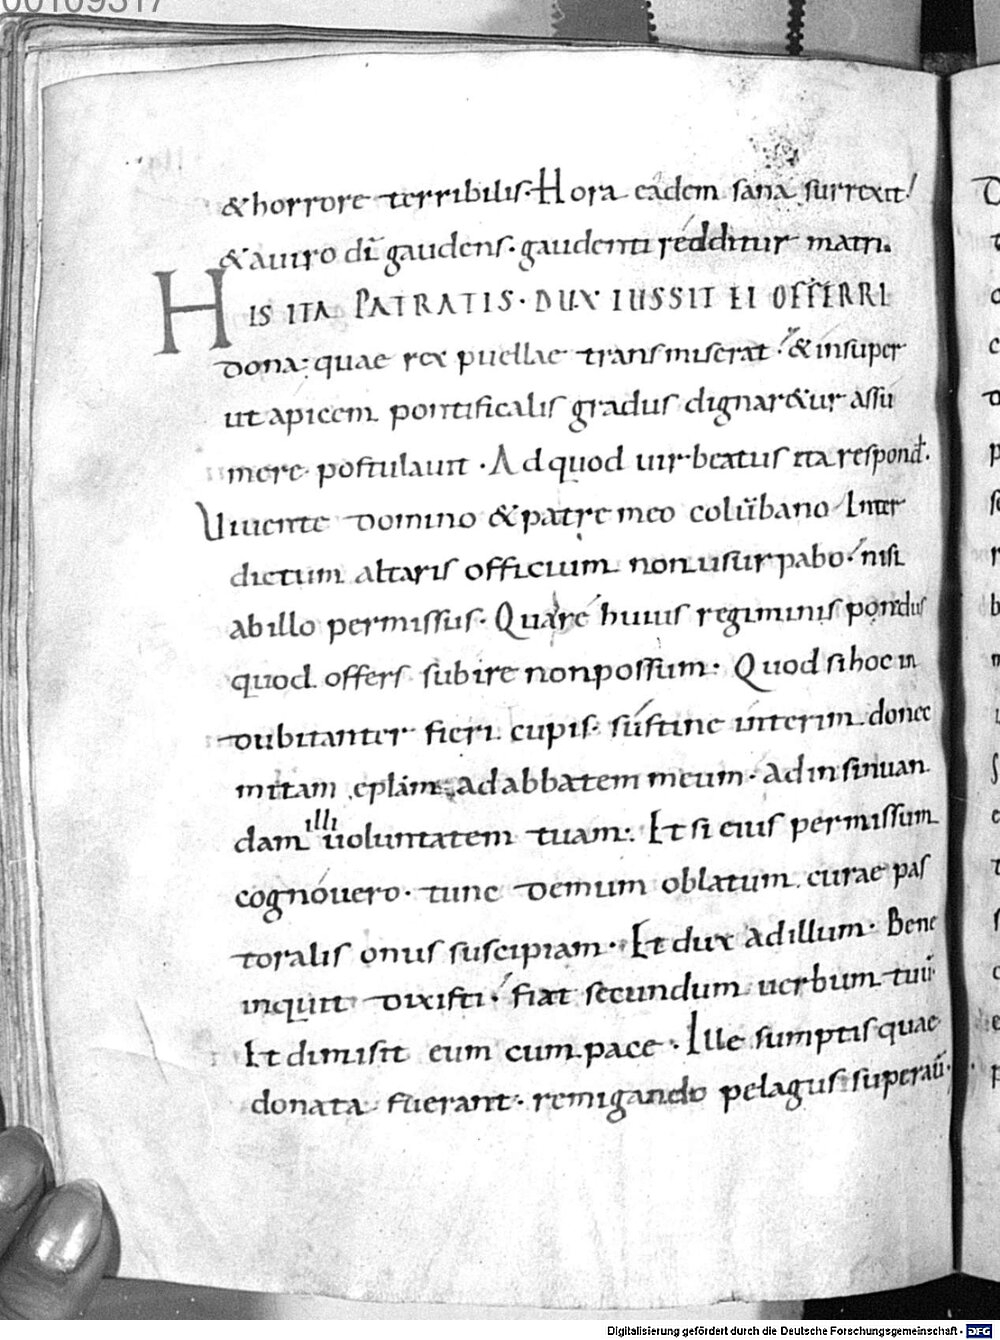 00109317
& horrore terribilis. Hora eadem sana surrexit!
& auiro dī gaudens. gaudenti redditur matri.
HIS ITA PATRATIS. DUX IUSSIT EI OFFERRI
dona: quae rex puellae transmiserat. & insuper
ut apicem pontificalis gradus dignar&ur assū
mere postulauit. Ad quod uir beatus ita respond.
Viuente domino & patre meo colūbano Inter
dictum altaris officium non usurpabo. nisi
ab illo permissus. Quare huius regiminis pondus
quod offers subire non possum. Quod si hoc in
dubitanter fieri cupis. sustine interim donec
mitam epłam ad abbatem meum. ad insinuan
dam illi uoluntatem tuam. Et si eius permissum
cognouero. tunc demum oblatum curae pas
toralis onus suscipiam. Et dux ad illum. Bene
inquit dixisti. fiat secundum uerbum tuū
Et dimisit eum cum pace. Ille sumptis quae
donata fuerant. remigando pelagus superaū.
Digitalisierung gefördert durch die Deutsche Forschungsgemeinschaft - DFG